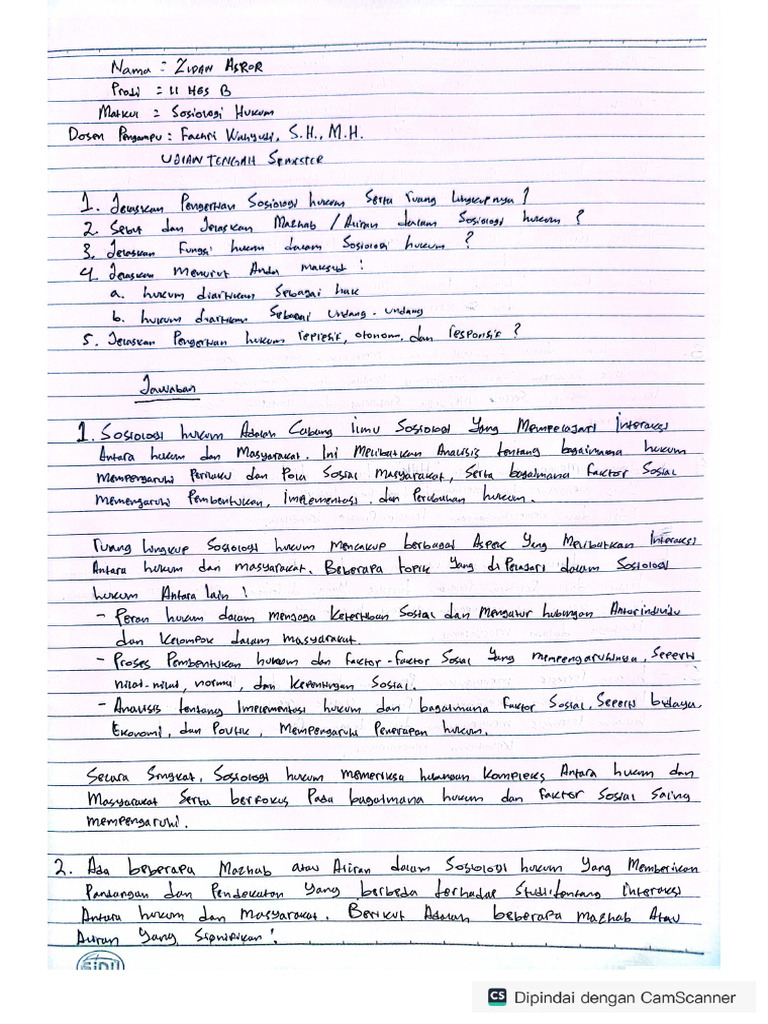 Nama : ZIDAN ASROR
Prodi = II HES B
Matkul = Sosiologi Hukum
Dosen Pengampu : Fachri Wahyudi, S.H., M.H.
UJIAN TENGAH SEMESTER
1. Jelaskan Pengertian Sosiologi hukum Serta ruang lingkupnya !
2. Sebut dan Jelaskan Mazhab / Aliran dalam Sosiologi hukum ?
3. Jelaskan Fungsi hukum dalam Sosiologi hukum ?
4. Jelaskan menurut Anda maksud !
a. hukum diartikan Sebagai hak
b. hukum diartikan Sebagai Undang-undang
5. Jelaskan Pengertian hukum represif, otonom, dan responsif ?
Jawaban
1. Sosiologi hukum Adalah Cabang ilmu Sosiologi Yang Mempelajari Interaksi
Antara hukum dan Masyarakat. Ini Melibatkan Analisis tentang bagaimana hukum
mempengaruhi Perilaku dan Pola Sosial masyarakat, Serta bagaimana faktor Sosial
memengaruhi Pembentukan, implementasi, dan Perubahan hukum.
ruang lingkup Sosiologi hukum mencakup berbagai Aspek Yang Melibatkan Interaksi
Antara hukum dan masyarakat. Beberapa topik Yang di Pelajari dalam Sosiologi
hukum Antara lain :
- Peran hukum dalam menjaga Ketertiban Sosial dan Mengatur hubungan Antar individu
dan Kelompok dalam masyarakat.
- Proses Pembentukan hukum dan faktor-faktor Sosial Yang mempengaruhinya, Seperti
nilai-nilai, norma, dan Kepentingan Sosial.
- Analisis tentang Implementasi hukum dan bagaimana faktor Sosial, Seperti budaya,
Ekonomi, dan Politik, Mempengaruhi Penerapan hukum.
Secara Singkat, Sosiologi hukum memeriksa hubungan Kompleks Antara hukum dan
Masyarakat Serta berfokus Pada bagaimana hukum dan faktor Sosial Saling
mempengaruhi.
2. Ada beberapa Mazhab atau Aliran dalam Sosiologi hukum Yang Memberikan
Pandangan dan Pendekatan Yang berbeda terhadap Studi tentang Interaksi
Antara hukum dan Masyarakat. Berikut Adalah beberapa mazhab Atau
Aliran Yang Signifikan :
SIDU
CS Dipindai dengan CamScanner